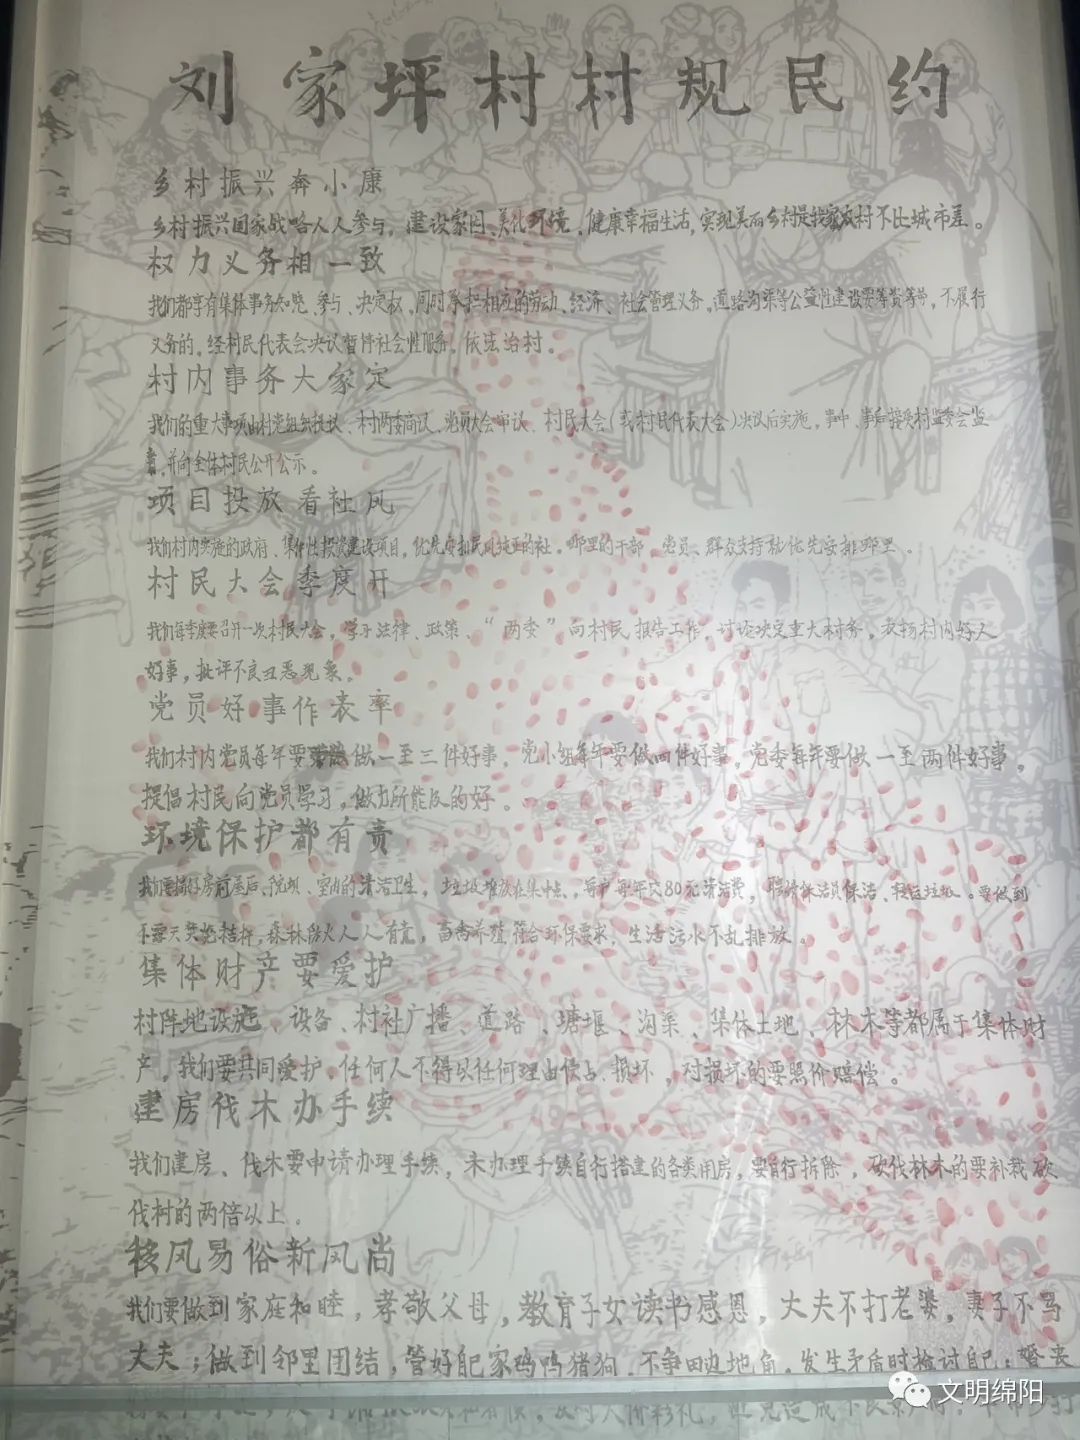 刘家坪村村规民约
乡村振兴奔小康
乡村振兴国家战略人人参与,建设家园、美化环境、健康幸福生活,实现美丽乡村是我家农村不比城市差。
权力义务相一致
我们都享有集体事务知晓、参与、决定权,同时承担相应的劳动、经济、社会管理义务,道路沟渠等公益性建设要筹资筹劳,不履行
义务的,经村民代表会决议暂停社会性服务。依法治村。
村内事务大家定
我们的重大事项由村党组织提议、村两委商议、党员大会审议、村民大会(或村民代表大会)决议后实施,事中、事后接受村监委会监
督,并向全体村民公开公示。
项目投放看社风
我们村内实施的政府、集体性投资建设项目,优先安排民风纯正的社。哪里的干部、党员、群众支持就优先安排哪里。
村民大会季度开
我们每季度要召开一次村民大会,学习法律、政策、“两委”向村民报告工作,讨论决定重大村务,表扬村内好人
好事,批评不良丑恶现象。
党员好事作表率
我们村内党员每年要做一至三件好事,党小组每年要做四件好事,党委每年要做一至两件好事。
提倡村民向党员学习,做力所能及的好。
环境保护都有责
我们要搞好房前屋后、院坝、室内的清洁卫生,垃圾堆放在集中点,每户每年交80元清洁费,聘请保洁员保洁、转运垃圾。要做到
不露天焚烧秸秆,森林防火人人有责,畜禽养殖符合环保要求,生活污水不乱排放。
集体财产要爱护
村阵地设施、设备、村社广播、道路、塘堰、沟渠、集体土地、林木等都属于集体财
产,我们要共同爱护,任何人不得以任何理由侵占、损坏,对损坏的要照价赔偿。
建房伐木办手续
我们建房、伐木要申请办理手续,未办理手续自行搭建的各类用房,要自行拆除,砍伐林木的要补栽砍
伐树的两倍以上。
移风易俗新风尚
我们要做到家庭和睦,孝敬父母,教育子女读书感恩,丈夫不打老婆,妻子不骂
丈夫;做到邻里团结,管好自家鸡鸭猪狗,不争田边地角。发生矛盾时检讨自己;婚丧
文明绵阳